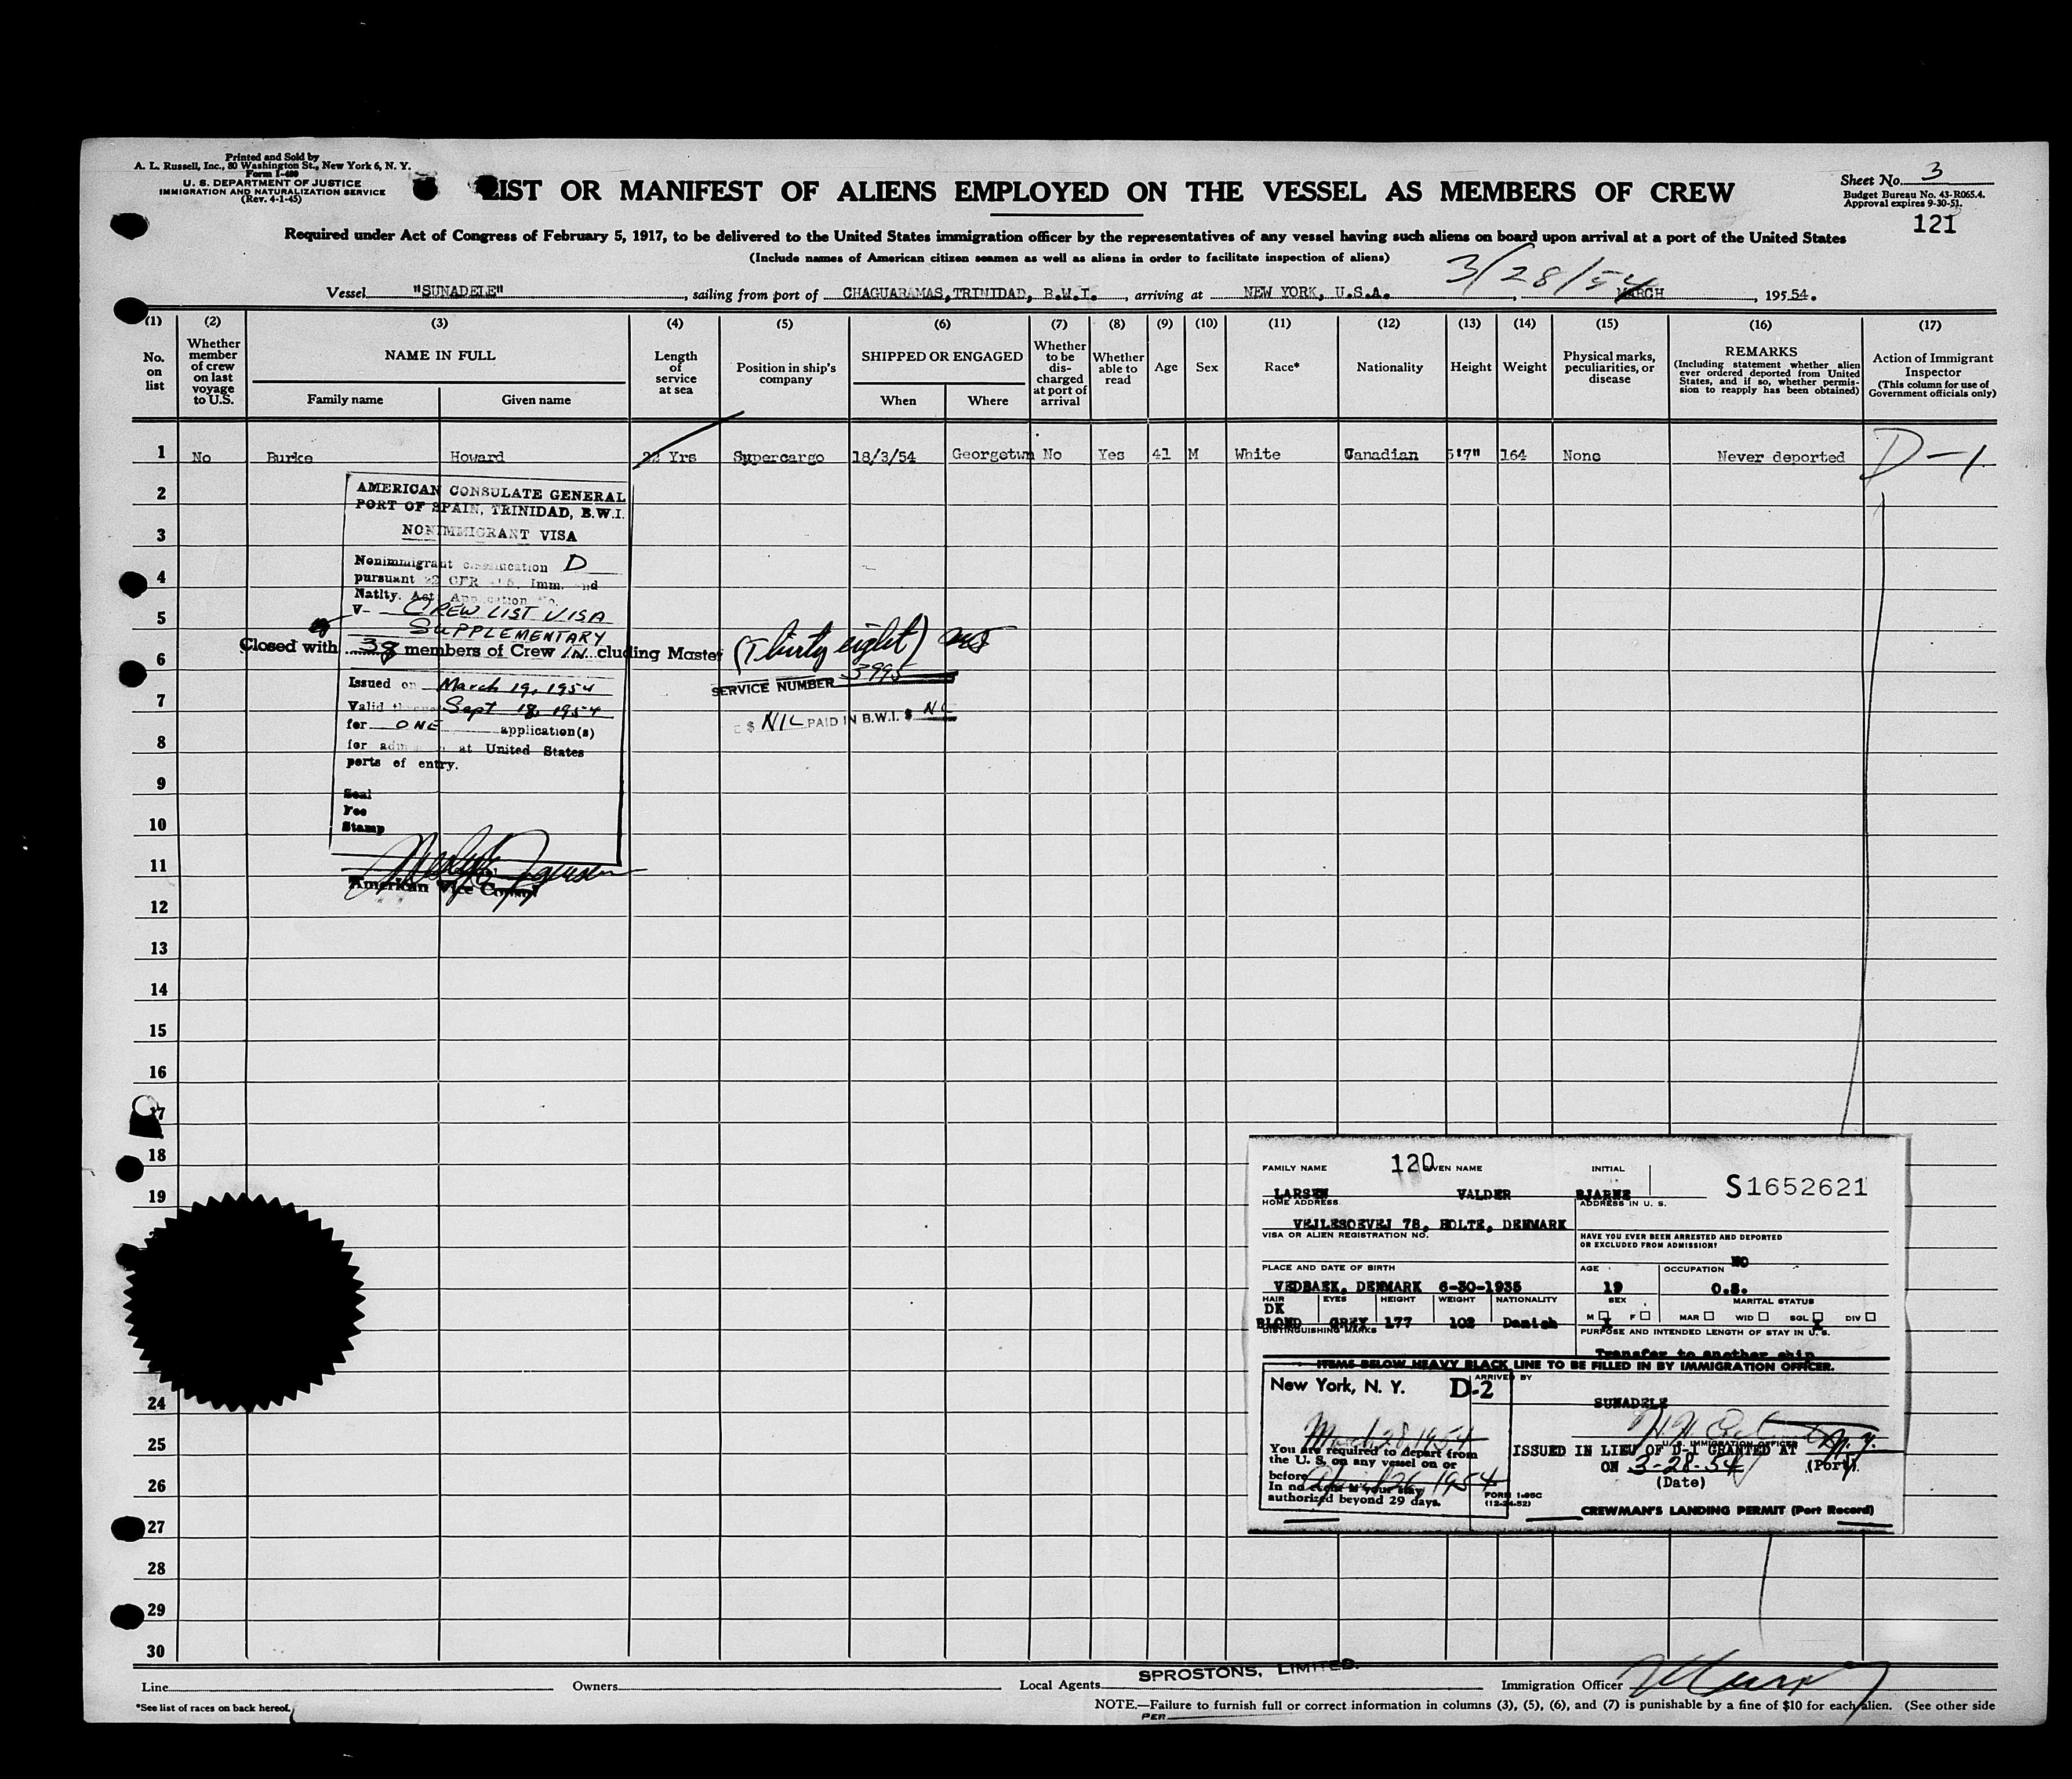 Printed and Sold by
A. L. Russell, Inc., 80 Washington St., New York 6, N. Y.
Form I-480
U. S. DEPARTMENT OF JUSTICE
IMMIGRATION AND NATURALIZATION SERVICE
(Rev. 4-1-45)
LIST OR MANIFEST OF ALIENS EMPLOYED ON THE VESSEL AS MEMBERS OF CREW
Sheet No. 3
Budget Bureau No. 43-R065.4.
Approval expires 9-30-51.
121
Required under Act of Congress of February 5, 1917, to be delivered to the United States immigration officer by the representatives of any vessel having such aliens on board upon arrival at a port of the United States
(Include names of American citizen seamen as well as aliens in order to facilitate inspection of aliens)
3/28/54
Vessel "SUNADELE", sailing from port of CHAGUARAMAS, TRINIDAD, B.W.I., arriving at NEW YORK, U.S.A., MARCH, 1954.
(1) (2) (3) (4) (5) (6) (7) (8) (9) (10) (11) (12) (13) (14) (15) (16) (17)
No. on list
Whether member of crew on last voyage to U.S.
NAME IN FULL
Family name
Given name
Length of service at sea
Position in ship's company
SHIPPED OR ENGAGED
When
Where
Whether to be discharged at port of arrival
Whether able to read
Age
Sex
Race*
Nationality
Height
Weight
Physical marks, peculiarities, or disease
REMARKS
(Including statement whether alien ever ordered deported from United States, and if so, whether permission to reapply has been obtained)
Action of Immigrant Inspector
(This column for use of Government officials only)
1 No Burke Howard 22 Yrs Supercargo 18/3/54 Georgetwn No Yes 41 M White Canadian 5'7" 164 None Never deported D-1
2
3
4
5
6
7
8
9
10
11
12
13
14
15
16
17
18
19
24
25
26
27
28
29
30
AMERICAN CONSULATE GENERAL
PORT OF SPAIN, TRINIDAD, B.W.I.
NONIMMIGRANT VISA
Nonimmigrant classification D
pursuant 22 CFR Imm. and
Natlty. Act, Application No.
V- CREW LIST VISA
SUPPLEMENTARY
Closed with 38 members of Crew IN cluding Master (Thirty eight)
SERVICE NUMBER 3995
Issued on March 19, 1954
Valid through Sept 18, 1954
$ NIL PAID IN B.W.I. $ NIL
for ONE application(s)
for admission at United States
ports of entry.
Seal
Fee
Stamp
American Vice Consul
FAMILY NAME 120 GIVEN NAME INITIAL
LARSEN VALDER BJARNE S1652621
HOME ADDRESS ADDRESS IN U. S.
VEJLESOEVEJ 78, HOLTE, DENMARK
VISA OR ALIEN REGISTRATION NO.
HAVE YOU EVER BEEN ARRESTED AND DEPORTED
OR EXCLUDED FROM ADMISSION?
NO
PLACE AND DATE OF BIRTH AGE OCCUPATION
VEDBAEK, DENMARK 6-30-1935 19 O.S.
HAIR EYES HEIGHT WEIGHT NATIONALITY SEX MARITAL STATUS
DK
BLOND GREY 177 102 Danish M X F MAR WID SGL X DIV
DISTINGUISHING MARKS PURPOSE AND INTENDED LENGTH OF STAY IN U. S.
Transfer to another ship
ITEMS BELOW HEAVY BLACK LINE TO BE FILLED IN BY IMMIGRATION OFFICER.
New York, N. Y. D-2 ARRIVED BY
SUNADELE
March 28 1954
U. S. IMMIGRATION OFFICER
You are required to depart from
the U. S. on any vessel on or
before April 26, 1954
In no event is your stay
authorized beyond 29 days.
ISSUED IN LIEU OF D-1 GRANTED AT N.Y.
ON 3-28-54 (Port)
(Date)
FORM I-95C
(12-24-52)
CREWMAN'S LANDING PERMIT (Port Record)
SPROSTONS, LIMITED.
Line Owners Local Agents Immigration Officer
*See list of races on back hereof.
NOTE.—Failure to furnish full or correct information in columns (3), (5), (6), and (7) is punishable by a fine of $10 for each alien. (See other side
PER